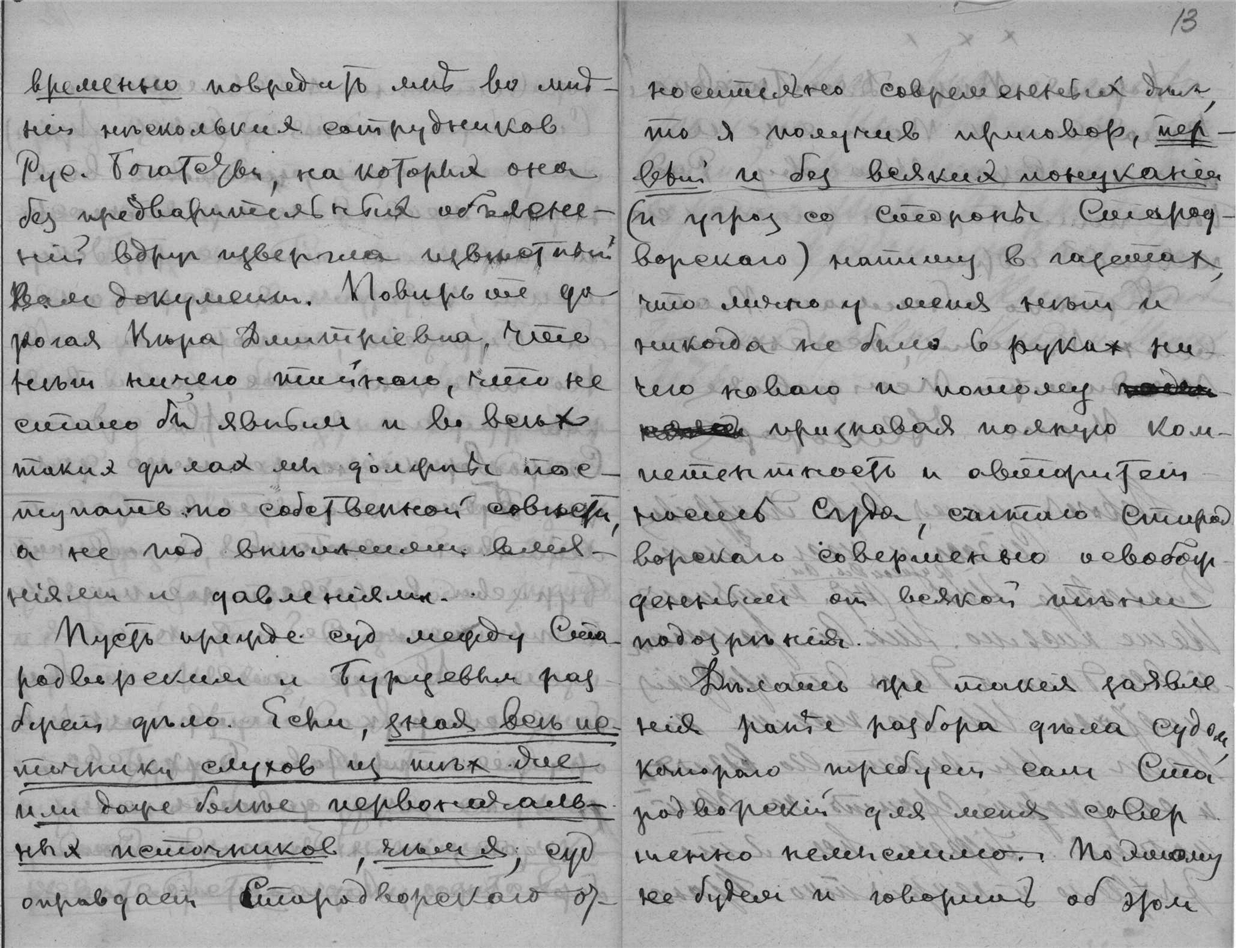 временно повредить мнѣ во мнѣ-
нiи нѣсколькихъ сотрудниковъ
Рус. Богатства, на которыхъ она
безъ предварительныхъ объясне-
нiй вдругъ извергла извѣстный
Вамъ документъ. Повѣрьте до-
рогая Вѣра Дмитрiевна, что
нѣтъ ничего тайнаго, что не
стало бы явнымъ и во всѣхъ
такихъ дѣлахъ мы должны пос-
тупать по собственной совѣсти,
а не подъ внѣшними влiя-
нiями и давленiями.
Пусть прежде судъ между Ста-
родворскимъ и Бурцевымъ раз-
беретъ дѣло. Если, зная всѣ ис-
точники слуховъ изъ тѣхъ же
или даже болѣе первоначаль-
ныхъ источниковъ, чѣмъ я, судъ
оправдаетъ Стародворскаго от-
13
носительно современныхъ дѣлъ,
то я получивъ приговоръ, пер-
вый и безъ всякихъ понуканiй
(и угрозъ со стороны Старод-
ворскаго) напишу въ газетахъ,
что лично у меня нѣтъ и
никогда не было въ рукахъ ни-
чего новаго и потому
признавая полную ком-
петентность и авторитет-
ность Суда, считаю Старод
ворскаго совершенно освобож-
деннымъ отъ всякой тѣни
подозрѣнiя.
Дѣлать же такiя заявле-
нiя ранѣе разбора дѣла судомъ,
котораго требуетъ самъ Ста
родворскiй для меня совер
шенно немыслимо. Поэтому
не будемъ и говорить объ этомъ